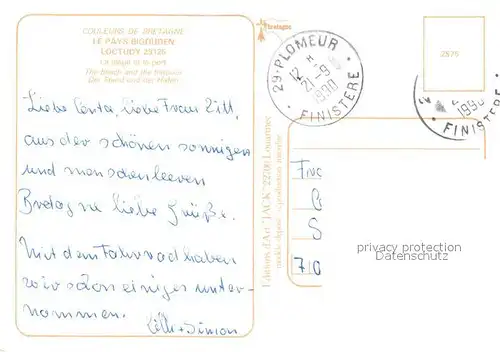 COULEURS DE BRETAGNE
LE PAYS BIGOUDEN
LOCTUDY 29125
La plage et le port
The Beach and the Harbour
Der Strand und der Hafen
Liebe Centa, liebe Frau Zill,
aus der schönen sonnigen
und menschenleeren
Bretagne liebe Grüße.
Mit dem Fahrrad haben
wir schon einiges unter-
nommen.
+ Simon
Bretagne
29 · PLOMEUR
12 H
21-9
1990
· FINISTÈRE ·
2975
1990
· FINISTÈRE ·
Editions d'Art "JACK" 22700 Louannec
modèle déposé - reproduction interdite
privacy protection
Datenschutz
S